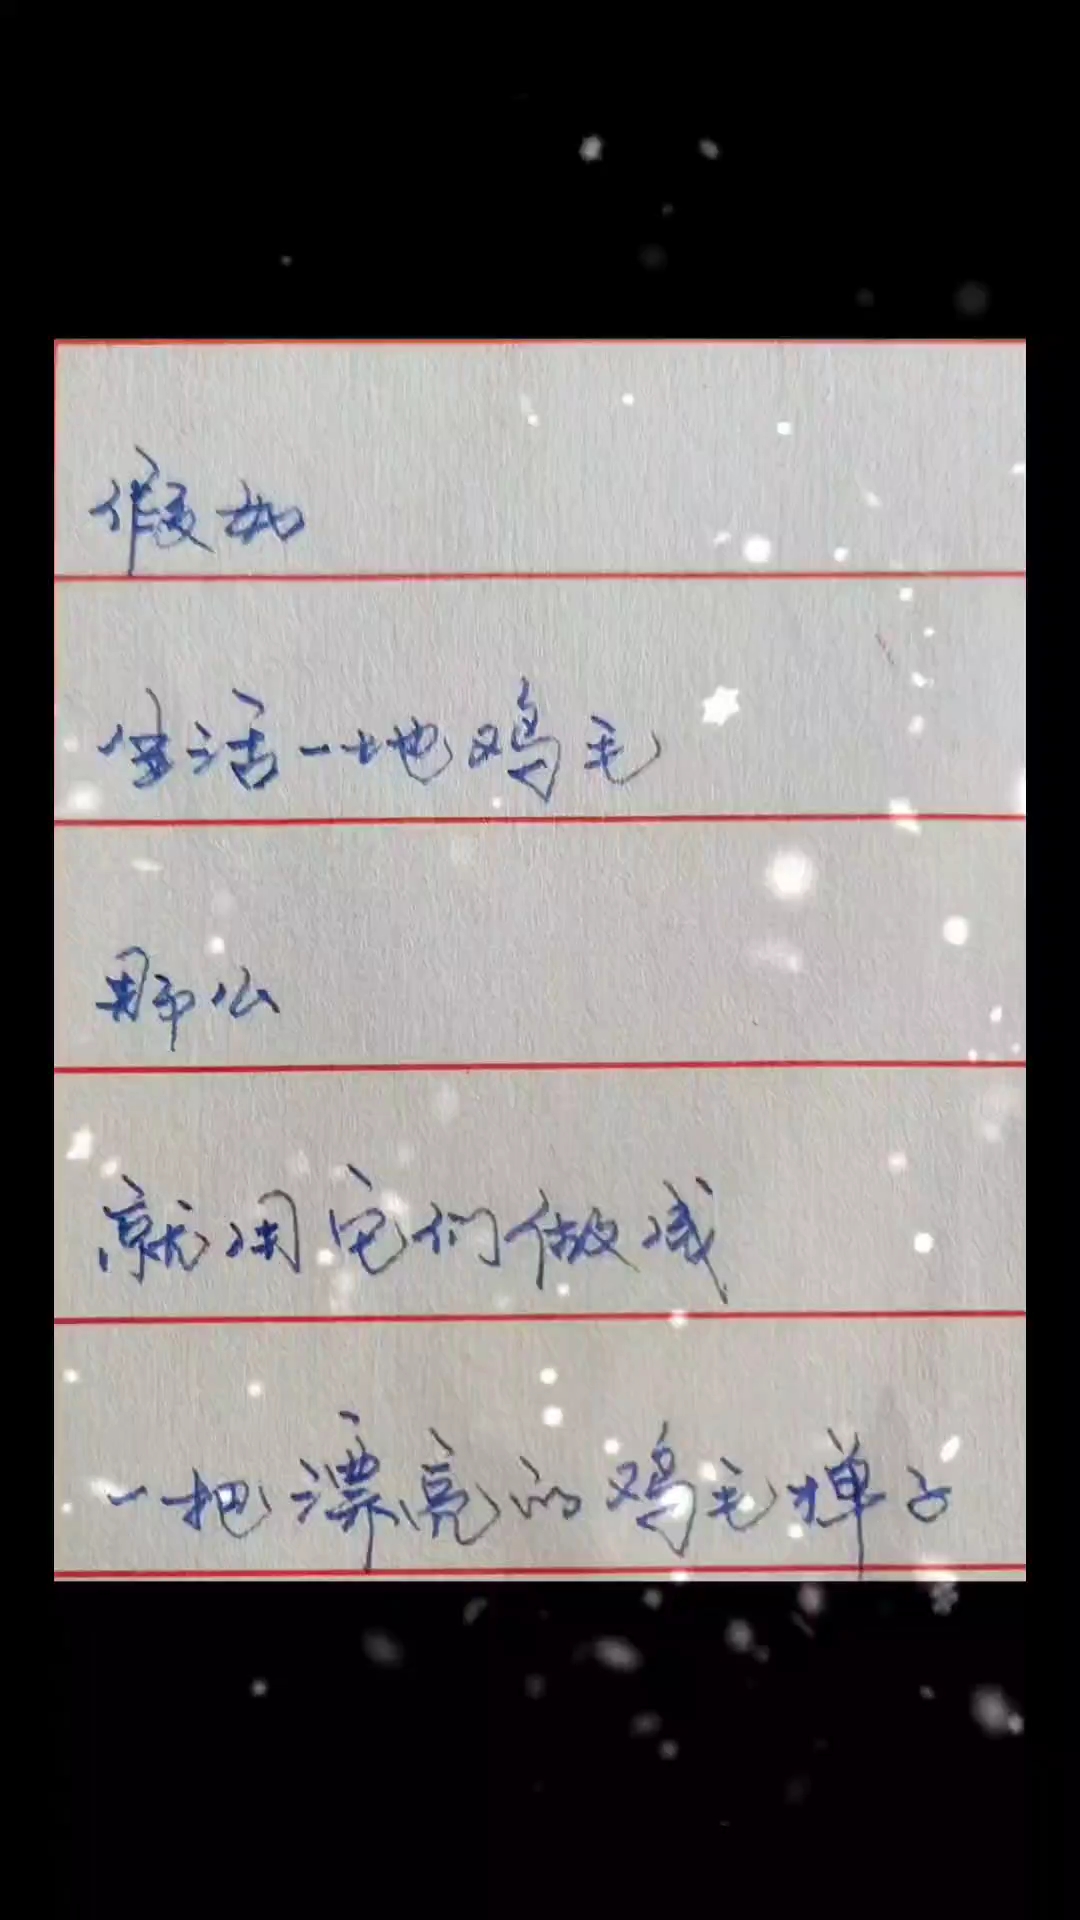 假如
生活一地鸡毛
那么
就用它们做成
一把漂亮的鸡毛掸子